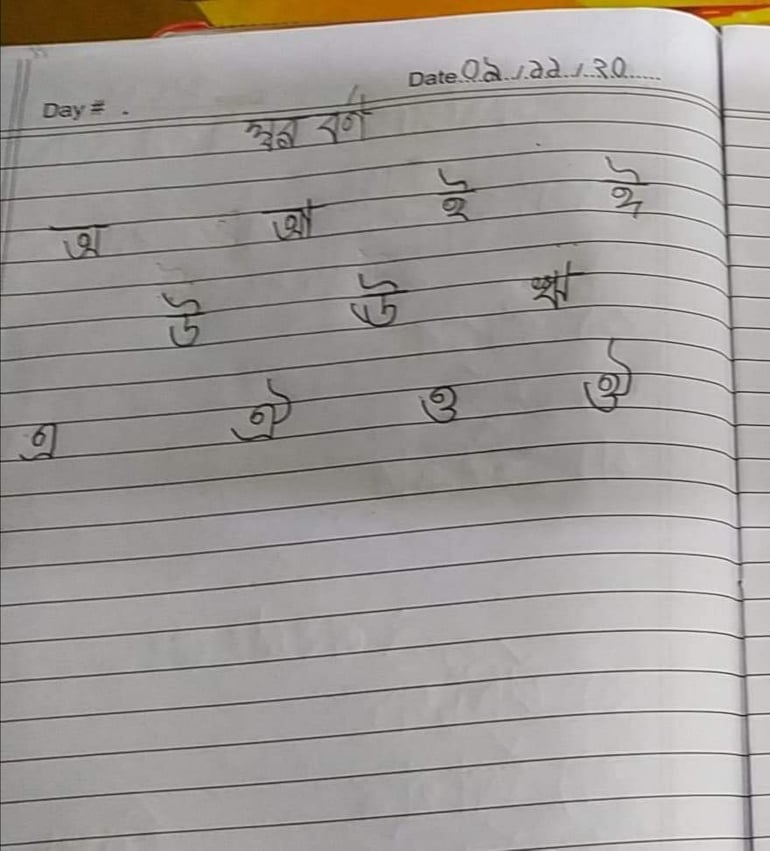 Day # Date ০১/১১/২০
স্বৰ বৰ্ণ
অ আ ই ঈ
উ ঊ ঋ
এ ঐ ও ঔ